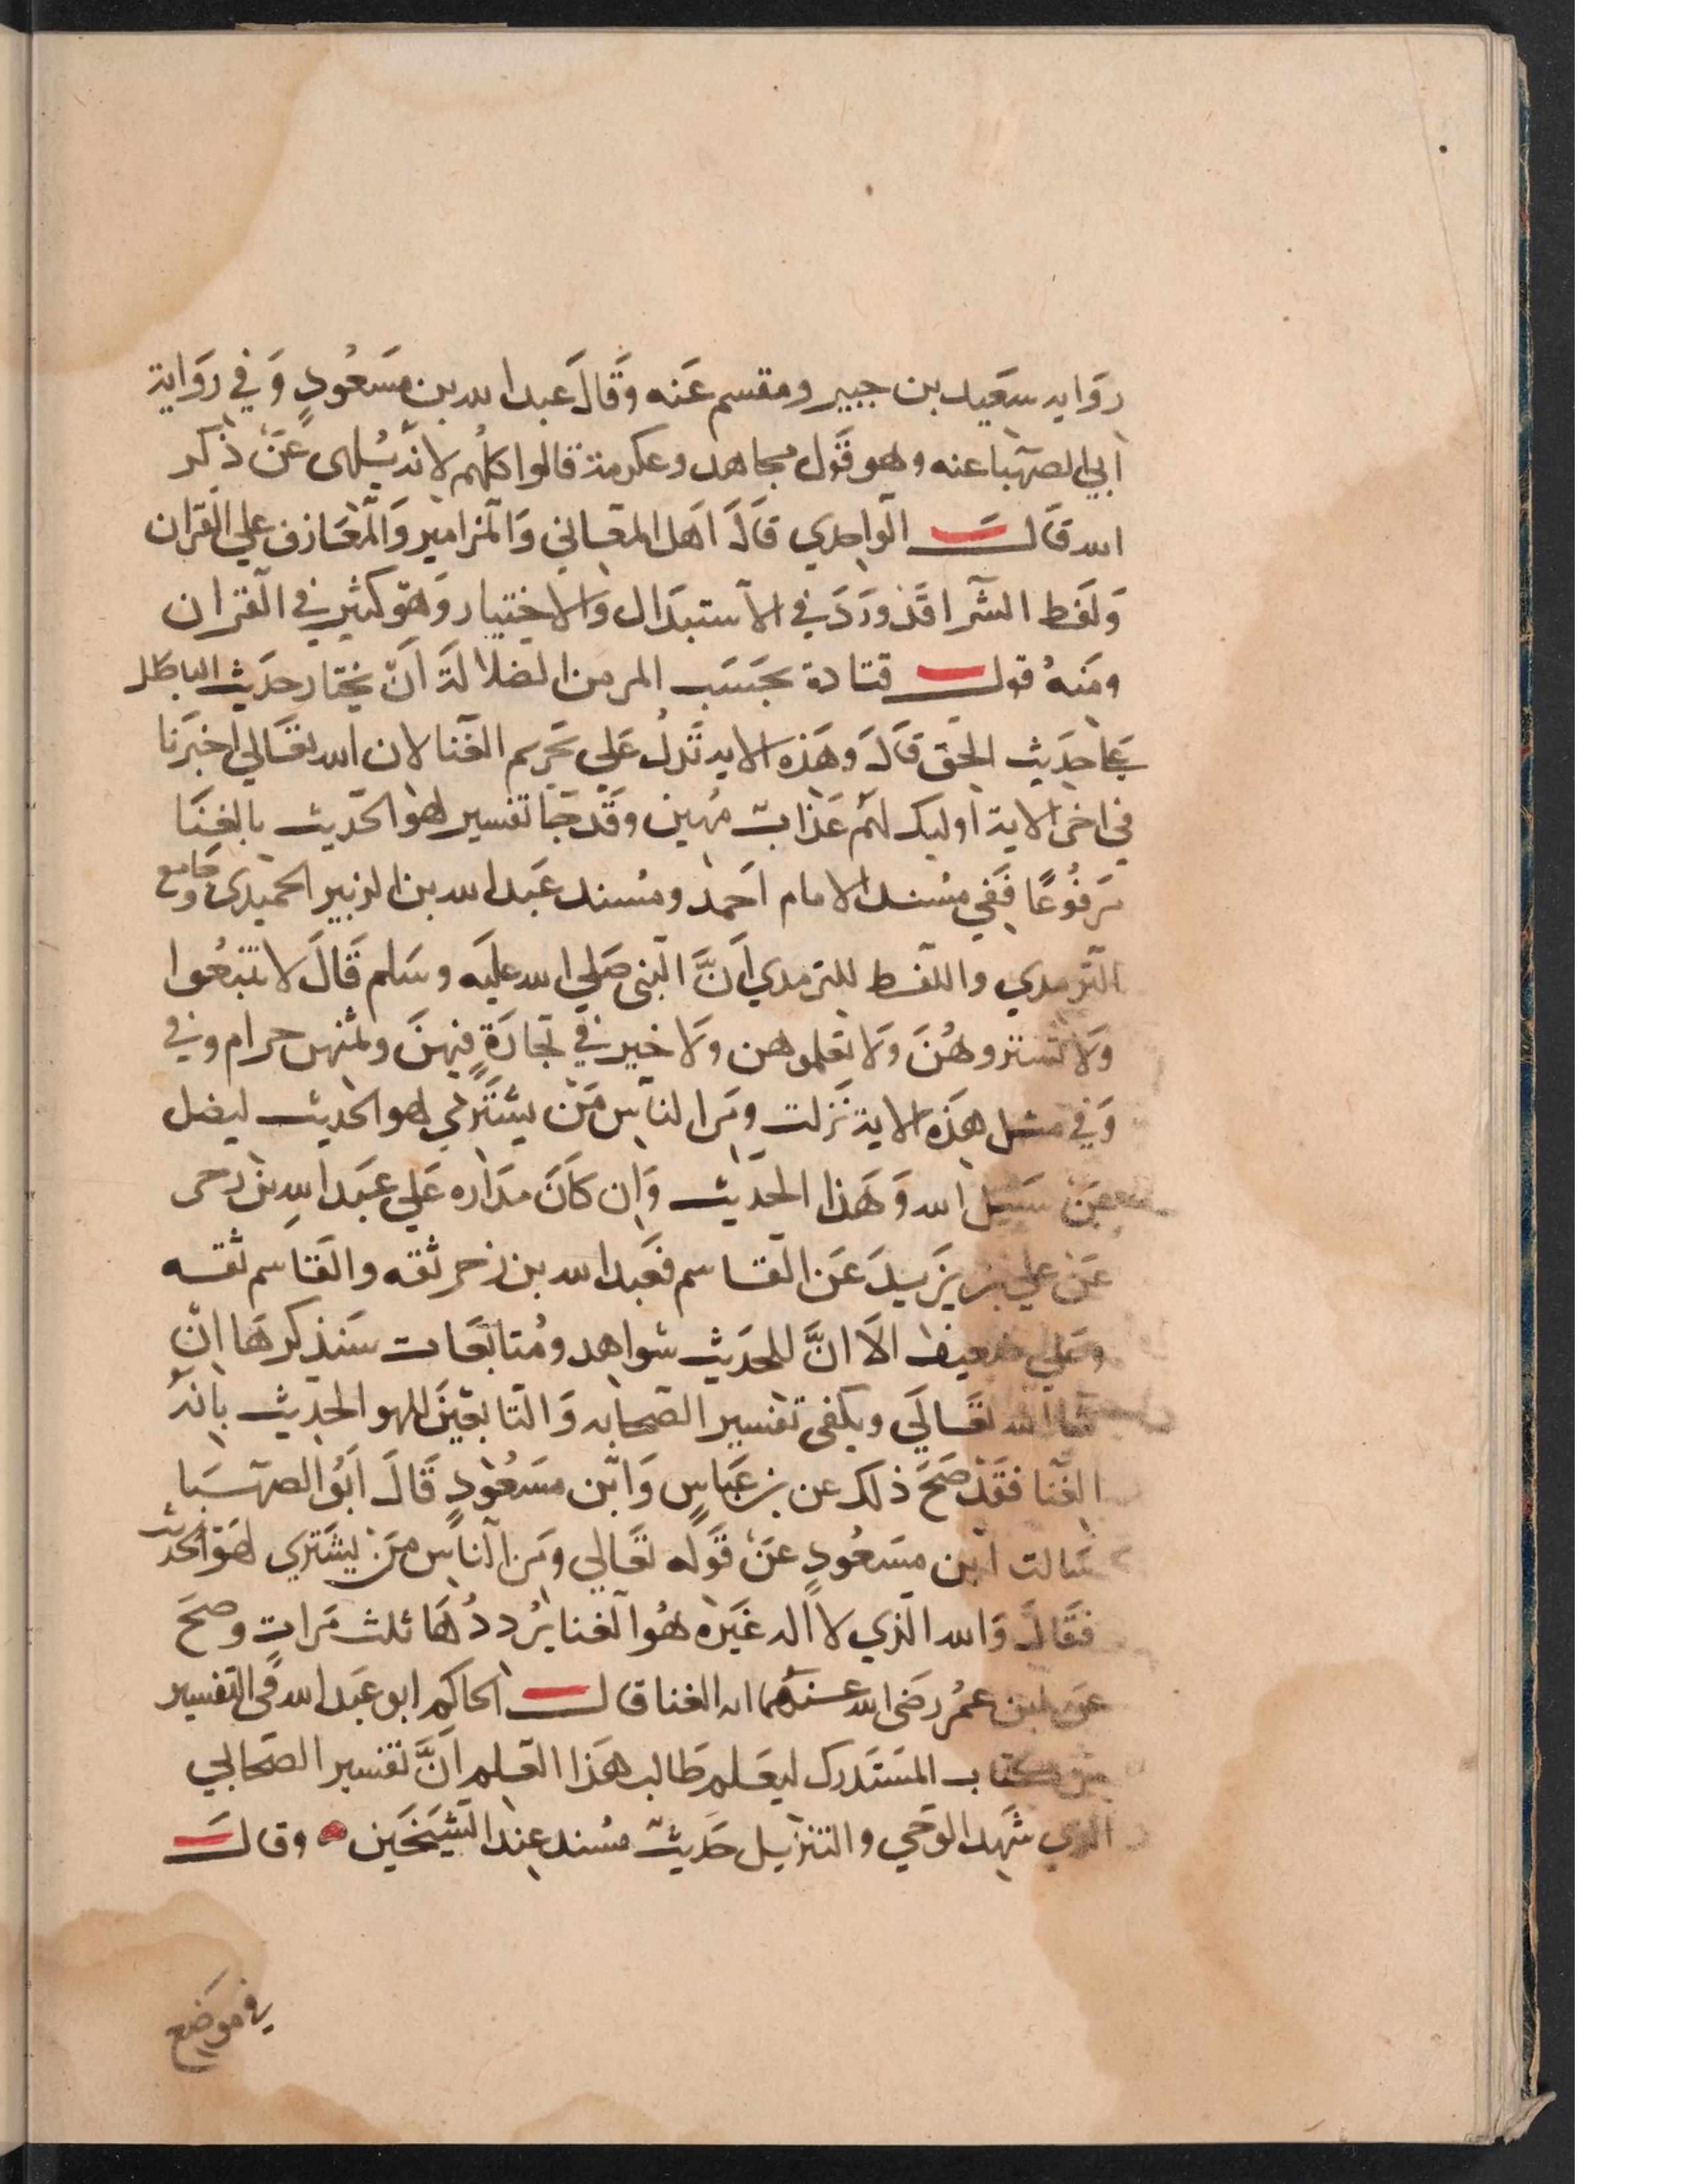 رواية سعيد بن جبير ومقسم عنه وقال عبد الله بن مسعود وفي رواية
ابي الصهبا عنه وهو قول مجاهد وعكرمة قالوا كلهم لانه يلهى عن ذكر
الله قال الواحدي قال اهل المعاني والمزامير والمعازف علي القران
ولفظ الشرا قد ورد في الاستبدال والاختيار وهو كثير في القران
ومنه قول قتادة بحسب المر من الضلالة ان يختار حديث الباطل
علي حديث الحق قال وهذه الاية تدل علي تحريم الغنا لان الله تعالي اخبرنا
في اخر الاية اوليك لهم عذاب مهين وقد جا تفسير لهو الحديث بالغنا
مرفوعا ففي مسند الامام احمد ومسند عبد الله بن الزبير الحميدي وجامع
الترمدي واللفظ للترمدي ان النبي صلي الله عليه وسلم قال لا تتبعوا
ولا تشتروهن ولا تعلموهن ولا خير في تجارة فيهن وثمنهن حرام وفي
وفي مثل هذه الاية نزلت ومن الناس من يشتري لهو الحديث ليضل
عن سبيل الله وهذا الحديث وان كان مداره علي عبد الله بن زحر
عن علي بن يزيد عن القاسم فعبد الله بن زحر ثقه والقاسم ثقه
وعلي ضعيف الا ان للحديث شواهد ومتابعات سنذكرها ان
شا الله تعالي ويكفي تفسير الصحابه والتابعين للهو الحديث بانه
الغنا فقد صح ذلك عن بن عباس وابن مسعود قال ابو الصهبا
سالت ابن مسعود عن قوله تعالي ومن الناس من يشتري لهو الحديث
فقال والله الذي لا اله غيره هو الغنا يرددها ثلث مرات وصح
عن ابن عمر رضى الله عنهما انه الغنا قال الحاكم ابو عبد الله في التفسير
من كتاب المستدرك ليعلم طالب هذا العلم ان تفسير الصحابي
الذي شهد الوحي والتنزيل حديث مسند عند الشيخين وقال
في موضع